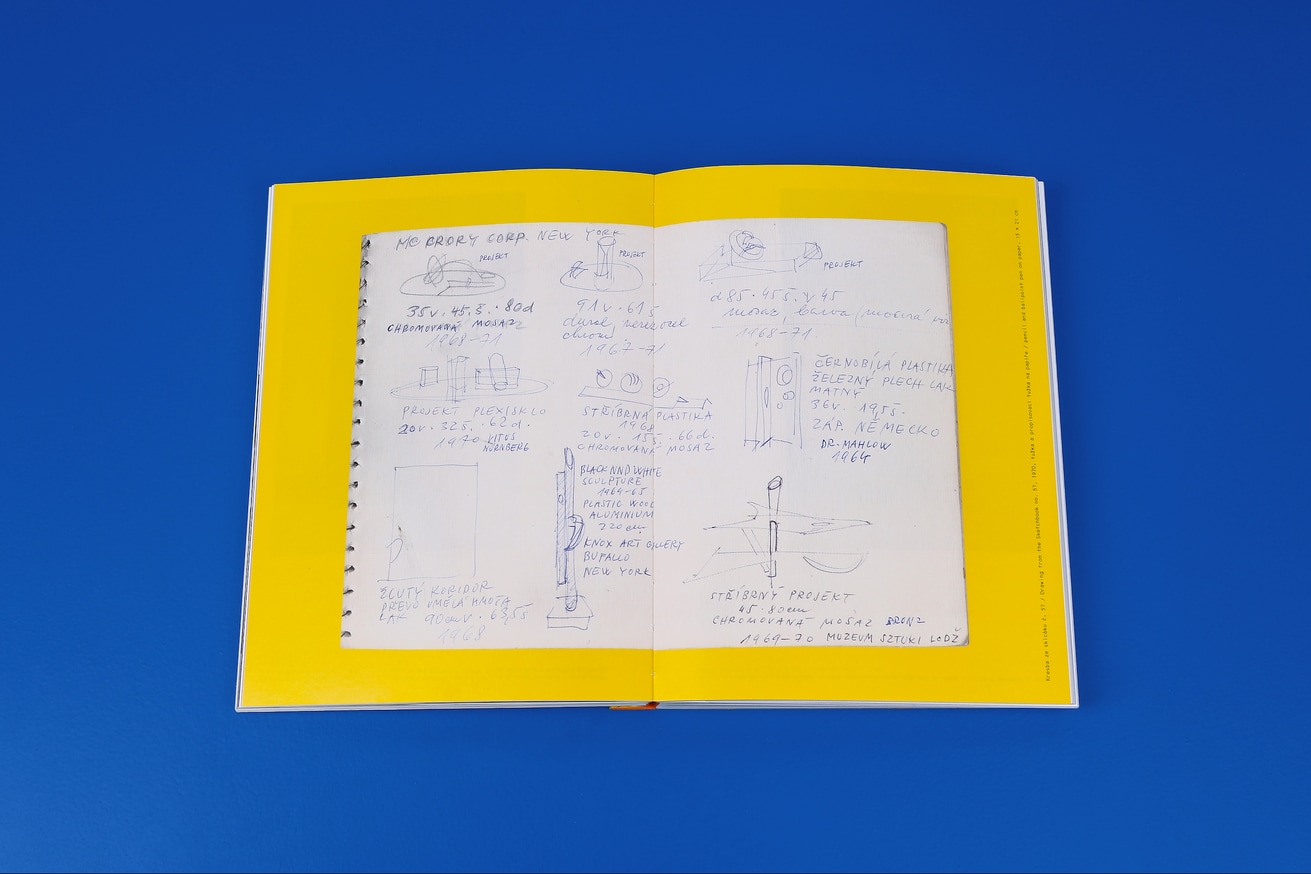 MC CRORY CORP. NEW YORK
PROJEKT
35v. 45.š. 80d
CHROMOVANÁ MOSAZ
1968-71
PROJEKT
91v. 61š
dural, nerez ocel
chrom
1967-71
PROJEKT
d85. 45š. v45
mosaz, barva
1968-71.
PROJEKT PLEXISKLO
20v. 32š. 62d.
1970 VITUS
NÜRNBERG
STŘÍBRNÁ PLASTIKA
1968
20v. 15š. 66d.
CHROMOVANÁ MOSAZ
ČERNOBÍLÁ PLASTIKA
ŽELEZNÝ PLECH LAK
MATNÝ
36v. 19,5š.
ZÁP. NĚMECKO
DR. MAHLOW
1964
ŽLUTÝ KORIDOR
DŘEVO UMĚLÁ HMOTA
LAK 90cmv. 63,5š
1968
BLACK NND WHITE
SCULPTURE
1964-65
PLASTIC WOOD
ALUMINIUM
220cm
KNOX ART GALLERY
BUFALLO
NEW YORK
STŘÍBRNÝ PROJEKT
45. 80cm
CHROMOVANÁ MOSAZ BRONZ
1969-70 MUZEUM SZTUKI LODŽ
Kresba ze skicáku č. 57 / Drawing from the Sketchbook no. 57, 1970, tužka a propisovací tužka na papíře / pencil and ballpoint pen on paper, 15 x 21 cm